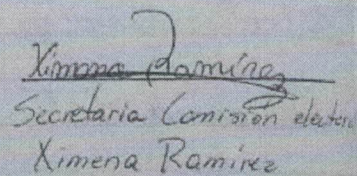 Ximena Ramírez
Secretaria Comisión electora
Ximena Ramírez